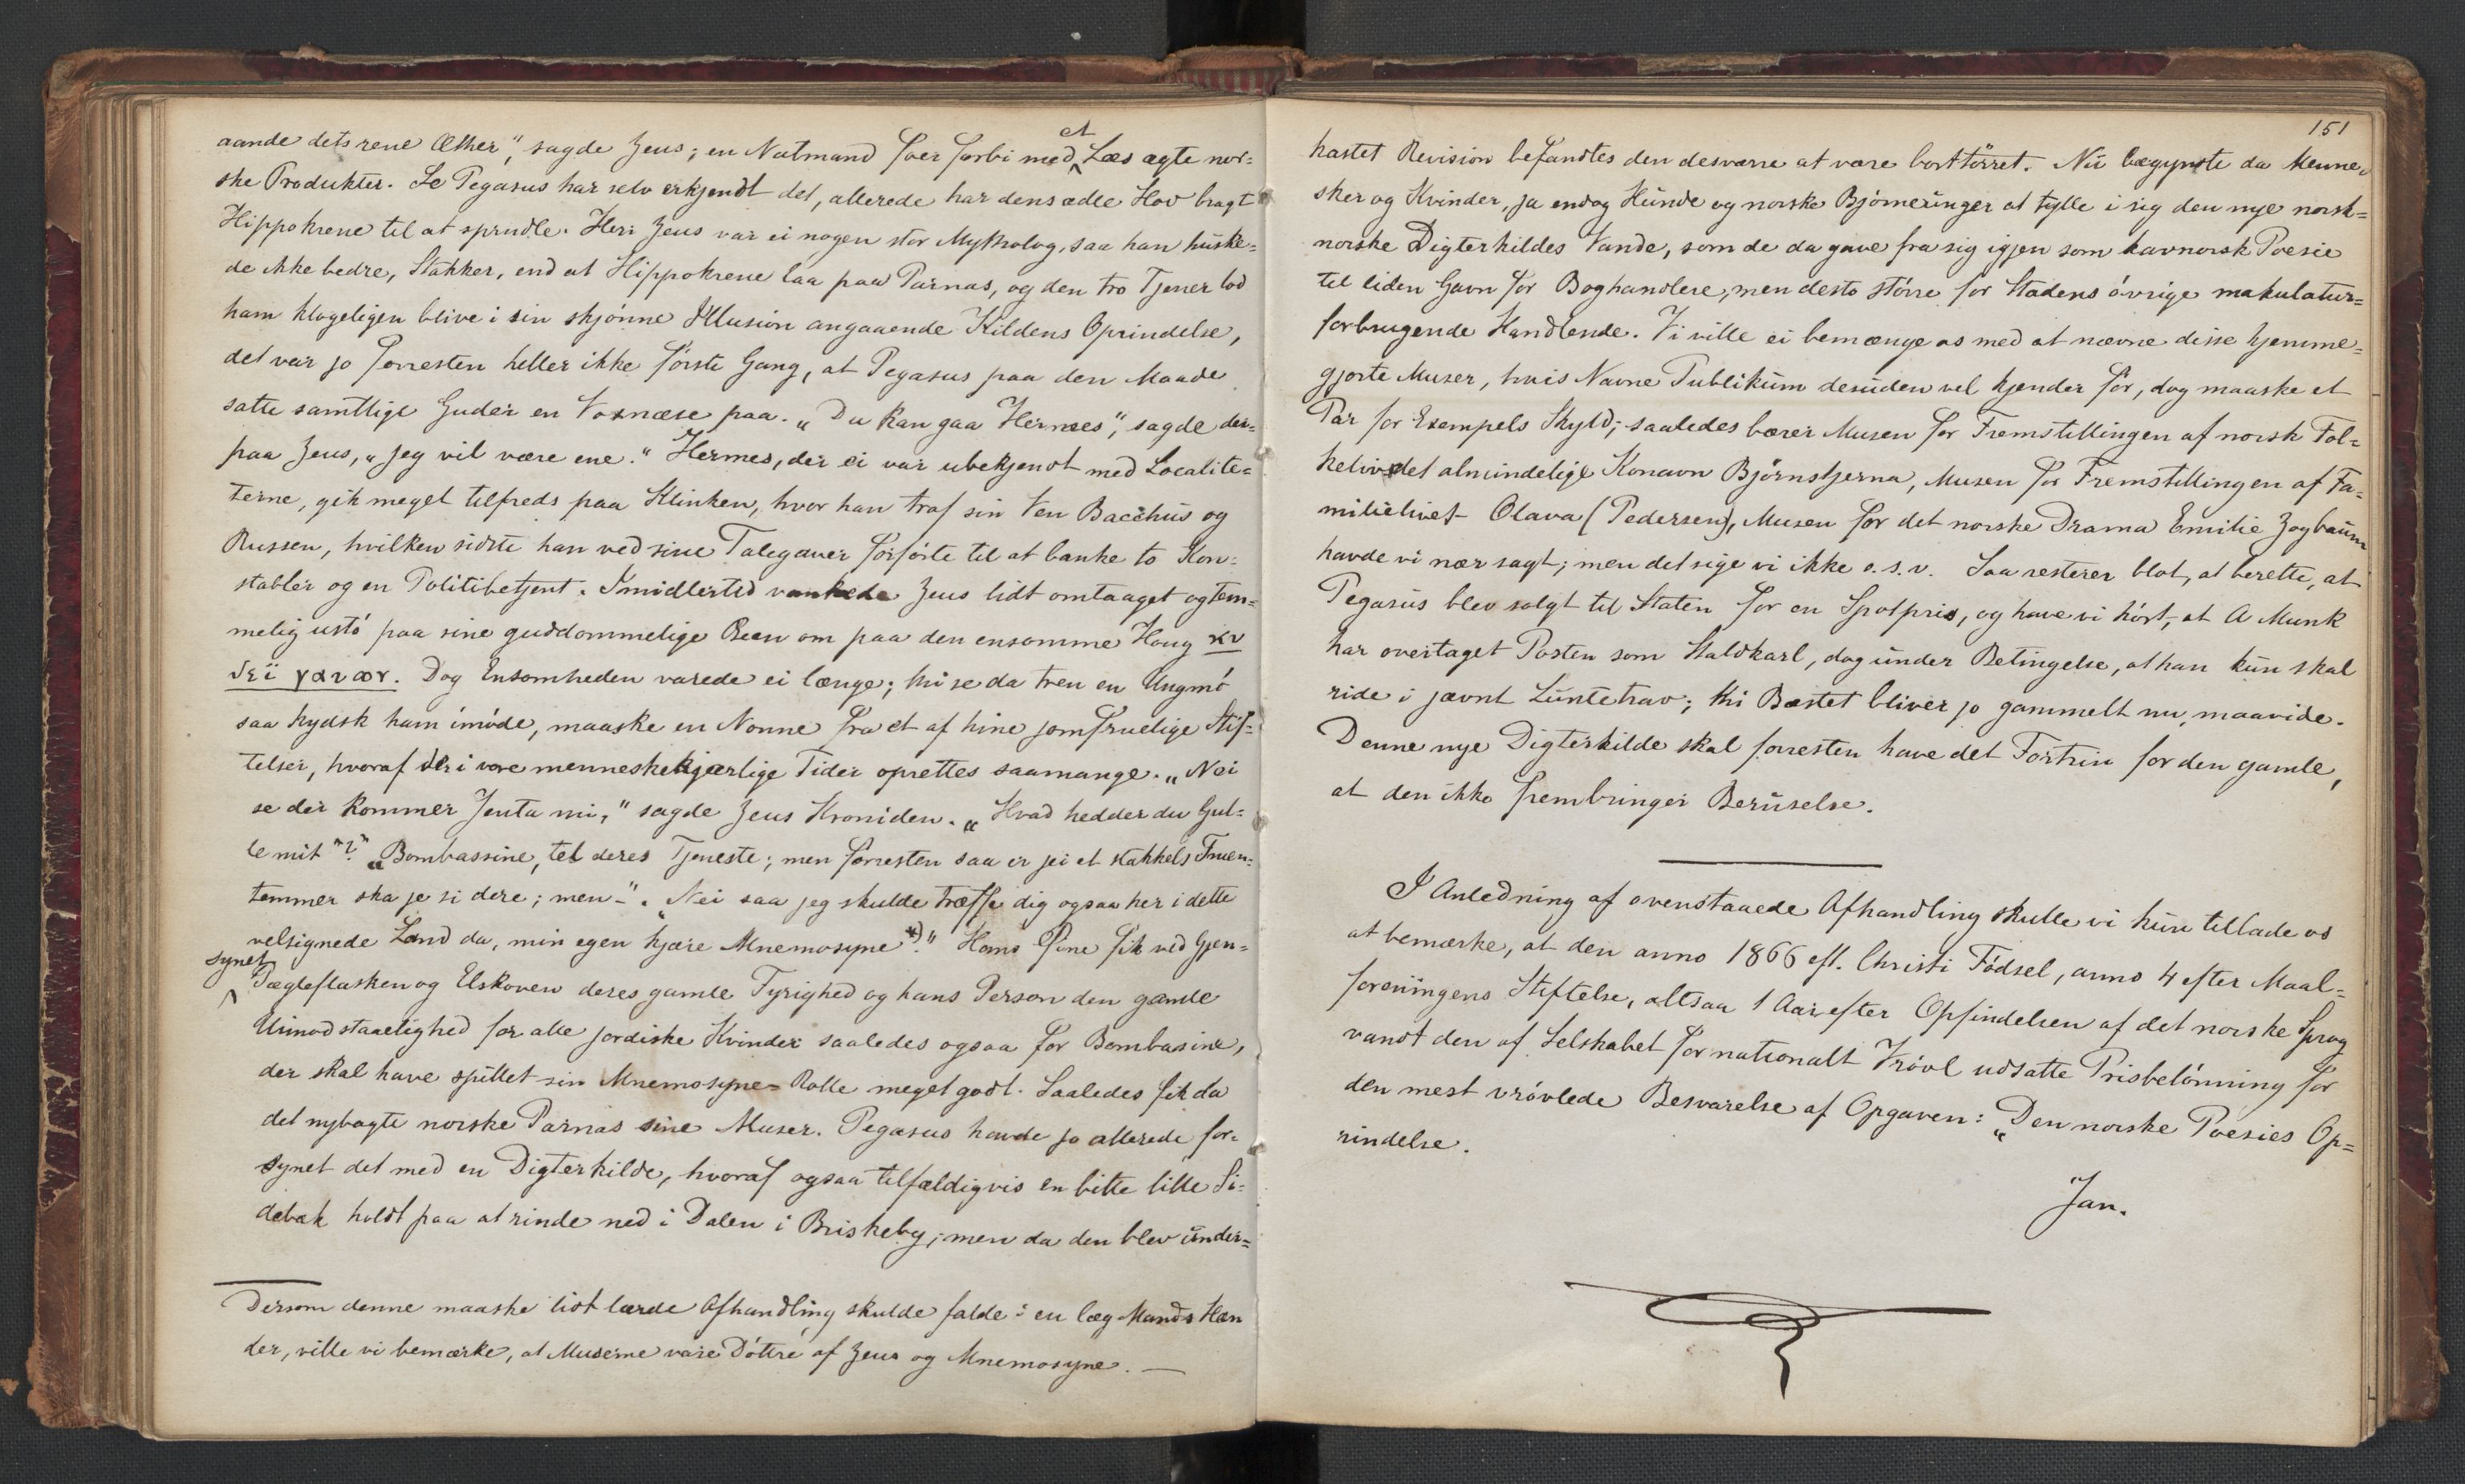 aande dets rene Æther", sagde Zeus; en Natmand foer forbi med et Læs ægte nor=
ske Produkter. Se Pegasus har selv erkjendt det, allerede har dens ædle Hov bragt
Hippokrene til at sprudle. Herr Zeus var ei nogen stor Mytholog, saa han huske=
de ikke bedre, Stakker, end at Hippokrene laa paa Parnas, og den tro Tjener lod
ham klogeligen blive i sin skjønne Illusion angaaende Kildens Oprindelse,
det var jo forresten heller ikke første Gang, at Pegasus paa den Maade
satte samtlige Guder en Voxnæse paa. „Du kan gaa Hermes", sagde der=
paa Zeus, „jeg vil være ene." Hermes, der ei var ubekjendt med Localite=
terne, gik meget tilfreds paa Klinken, hvor han traf sin Ven Bacchus og
Russen, hvilken sidste han ved sine Talegaver forførte til at banke to Kon=
stabler og en Politibetjent. Imidlertid vankede Zeus lidt omtaaget og tem=
melig ustø paa sine guddommelige Been om paa den ensomme Houg
Dog Ensomheden varede ei længe; thi se da tren en Ungmø
saa kydsk ham imøde, maaske en Nonne fra et af hine jomfruelige Stif=
telser, hvoraf der i vore menneskekjærlige Tider oprettes saamange. „Nei
se der kommer Jenta mi," sagde Zeus Kroniden. „Hvad hedder du Gul=
le mit"? „Bombassine, tel deres Tjeneste; men forresten saa er jei et stakkels Fruen=
temmer ska je si dere; men–". „Nei saa jeg skulde træffe dig ogsaa her i dette
velsignede Land da, min egen kjære Mnemosyne*)." Hans Øine fik ved Gjen=
synet Pægleflasken og Elskoven deres gamle Fyrighed og hans Person den gamle
Uimodstaaelighed for alle jordiske Kvinder saaledes ogsaa for Bombasine,
der skal have spillet sin Mnemosyne=Rolle meget godt. Saaledes fik da
det nybagte norske Parnas sine Muser. Pegasus havde jo allerede for=
synet det med en Digterkilde, hvoraf ogsaa tilfældigvis en bitte lille Si=
debæk holdt paa at rinde ned i Dalen i Briskeby; men da den blev under=
Dersom denne maaske lidt lærde Afhandling skulde falde i en læg Mands Hæn
der, ville vi bemærke, at Muserne vare Døttre af Zeus og Mnemosyne. —
151
kastet Revision befandtes den desværre at være borttørret. Nu begynste da Menne=
sker og Kvinder, ja endog Hunde og norske Bjørneunger at fylle i sig den nye norsk=
norske Digterkildes Vande, som de da gave fra sig igjen som kavnorsk Poesie
til liden Gavn for Boghandlere, men desto større for Stadens øvrige makulatur=
forbrugende Handlende. Vi ville ei bemænge os med at nævne disse hjemme=
gjorte Muser, hvis Navne Publikum desuden vel kjender før, dog maaske et
Par for Exempels Skyld; saaledes bærer Musen for Fremstillingen af norsk Fol=
keliv det almindelige Konavn Bjørnstjerna, Musen for Fremstillingen af Fa=
milielivet Olava (Pedersen), Musen for det norske Drama Emilie Zogbaum
havde vi nær sagt; men det sige vi ikke o. s. v. Saa resterer blot, at berette, at
Pegasus blev solgt til Staten for en Spotpris, og have vi hørt, at A Munk
har overtaget Posten som Staldkarl, dog under Betingelse, at han kun skal
ride i jævnt Luntetrav; thi Bæstet bliver jo gammelt nu, maavide.
Denne nye Digterkilde skal forresten have det Fortrin for den gamle,
at den ikke frembringer Beruselse.
I Anledning af ovenstaaede Afhandling skulle vi kun tillade os
at bemærke, at den anno 1866 eft. Christi Fødsel, anno 4 efter Maal=
foreningens Stiftelse, altsaa 1 Aar efter Opfindelsen af det norske Sprog
vandt den af Selskabet for nationalt Vrøvl udsatte Prisbelønning for
den mest vrøvlede Besvarelse af Opgaven: „Den norske Poesies Op=
rindelse.
Jan.